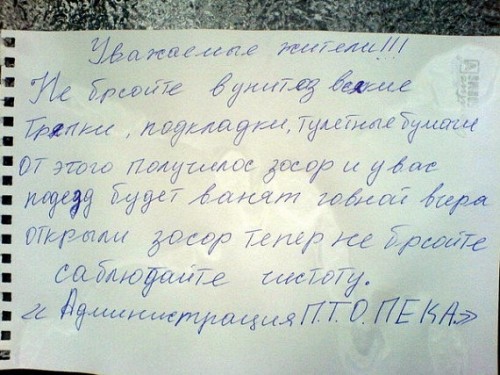 Уважаемые жители!!!
Не брсойте в унитоз всякие
Трепки, подкладки, тулетные бумаги
от этого получилос зосор и у вас
подезд будет ванят говной вчера
открыли зосор тепер не брсойте
саблюдайте чистоту.
«Администрация П.Т.О. ПЕКА.»